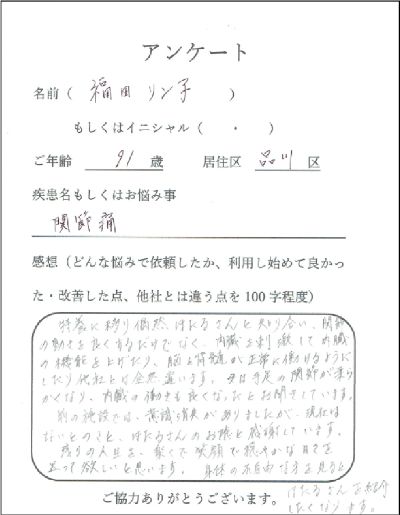 アンケート
名前( 福田 リン子 )
もしくはイニシャル( ・ )
ご年齢 91 歳 居住区 品川 区
疾患名もしくはお悩み事
関節痛
感想(どんな悩みで依頼したか、利用し始めて良かっ
た・改善した点、他社とは違う点を100字程度)
特養に移り偶然、ほたるさんと知り合い、関節
の動きを良くするだけでなく、内臓を刺激して内臓
の機能を上げたり、脳と脊髄が正常に働けるように
したり他社とは全然違います。 手足の関節が柔ら
かくなり、内臓の働きも良くなったとお聞きしています。
別の施設では、意識消失がありましたが、現在は
ないとのこと、ほたるさんのお陰と感謝しています。
残りの人生を、楽で笑顔で穏やかな日々を
送って欲しいと思います。 身体の不自由な方を見ると
ほたるさんを紹介
したくなります。
ご協力ありがとうございます。